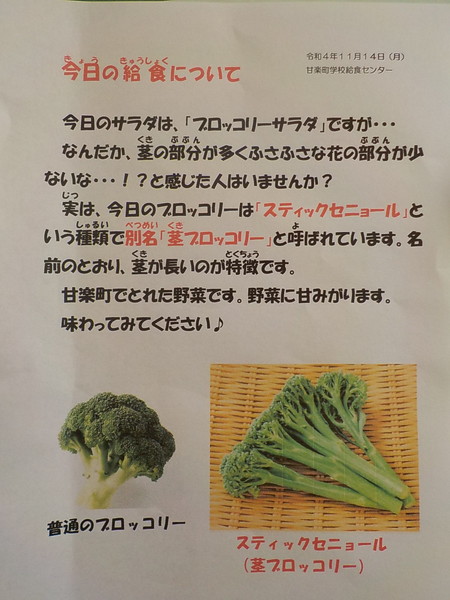 令和4年11月14日（月）
甘楽町学校給食センター
きょう きゅうしょく
今日の給食について
今日のサラダは、「ブロッコリーサラダ」ですが・・・
くき ぶぶん ぶぶん
なんだか、茎の部分が多くふさふさな花の部分が少
ないな・・・！？と感じた人はいませんか？
じつ
実は、今日のブロッコリーは「スティックセニョール」と
しゅるい べつめい くき よ
いう種類で別名「茎ブロッコリー」と呼ばれています。名
くき とくちょう
前のとおり、茎が長いのが特徴です。
甘楽町でとれた野菜です。野菜に甘みがります。
味わってみてください♪
普通のブロッコリー
スティックセニョール
（茎ブロッコリー）